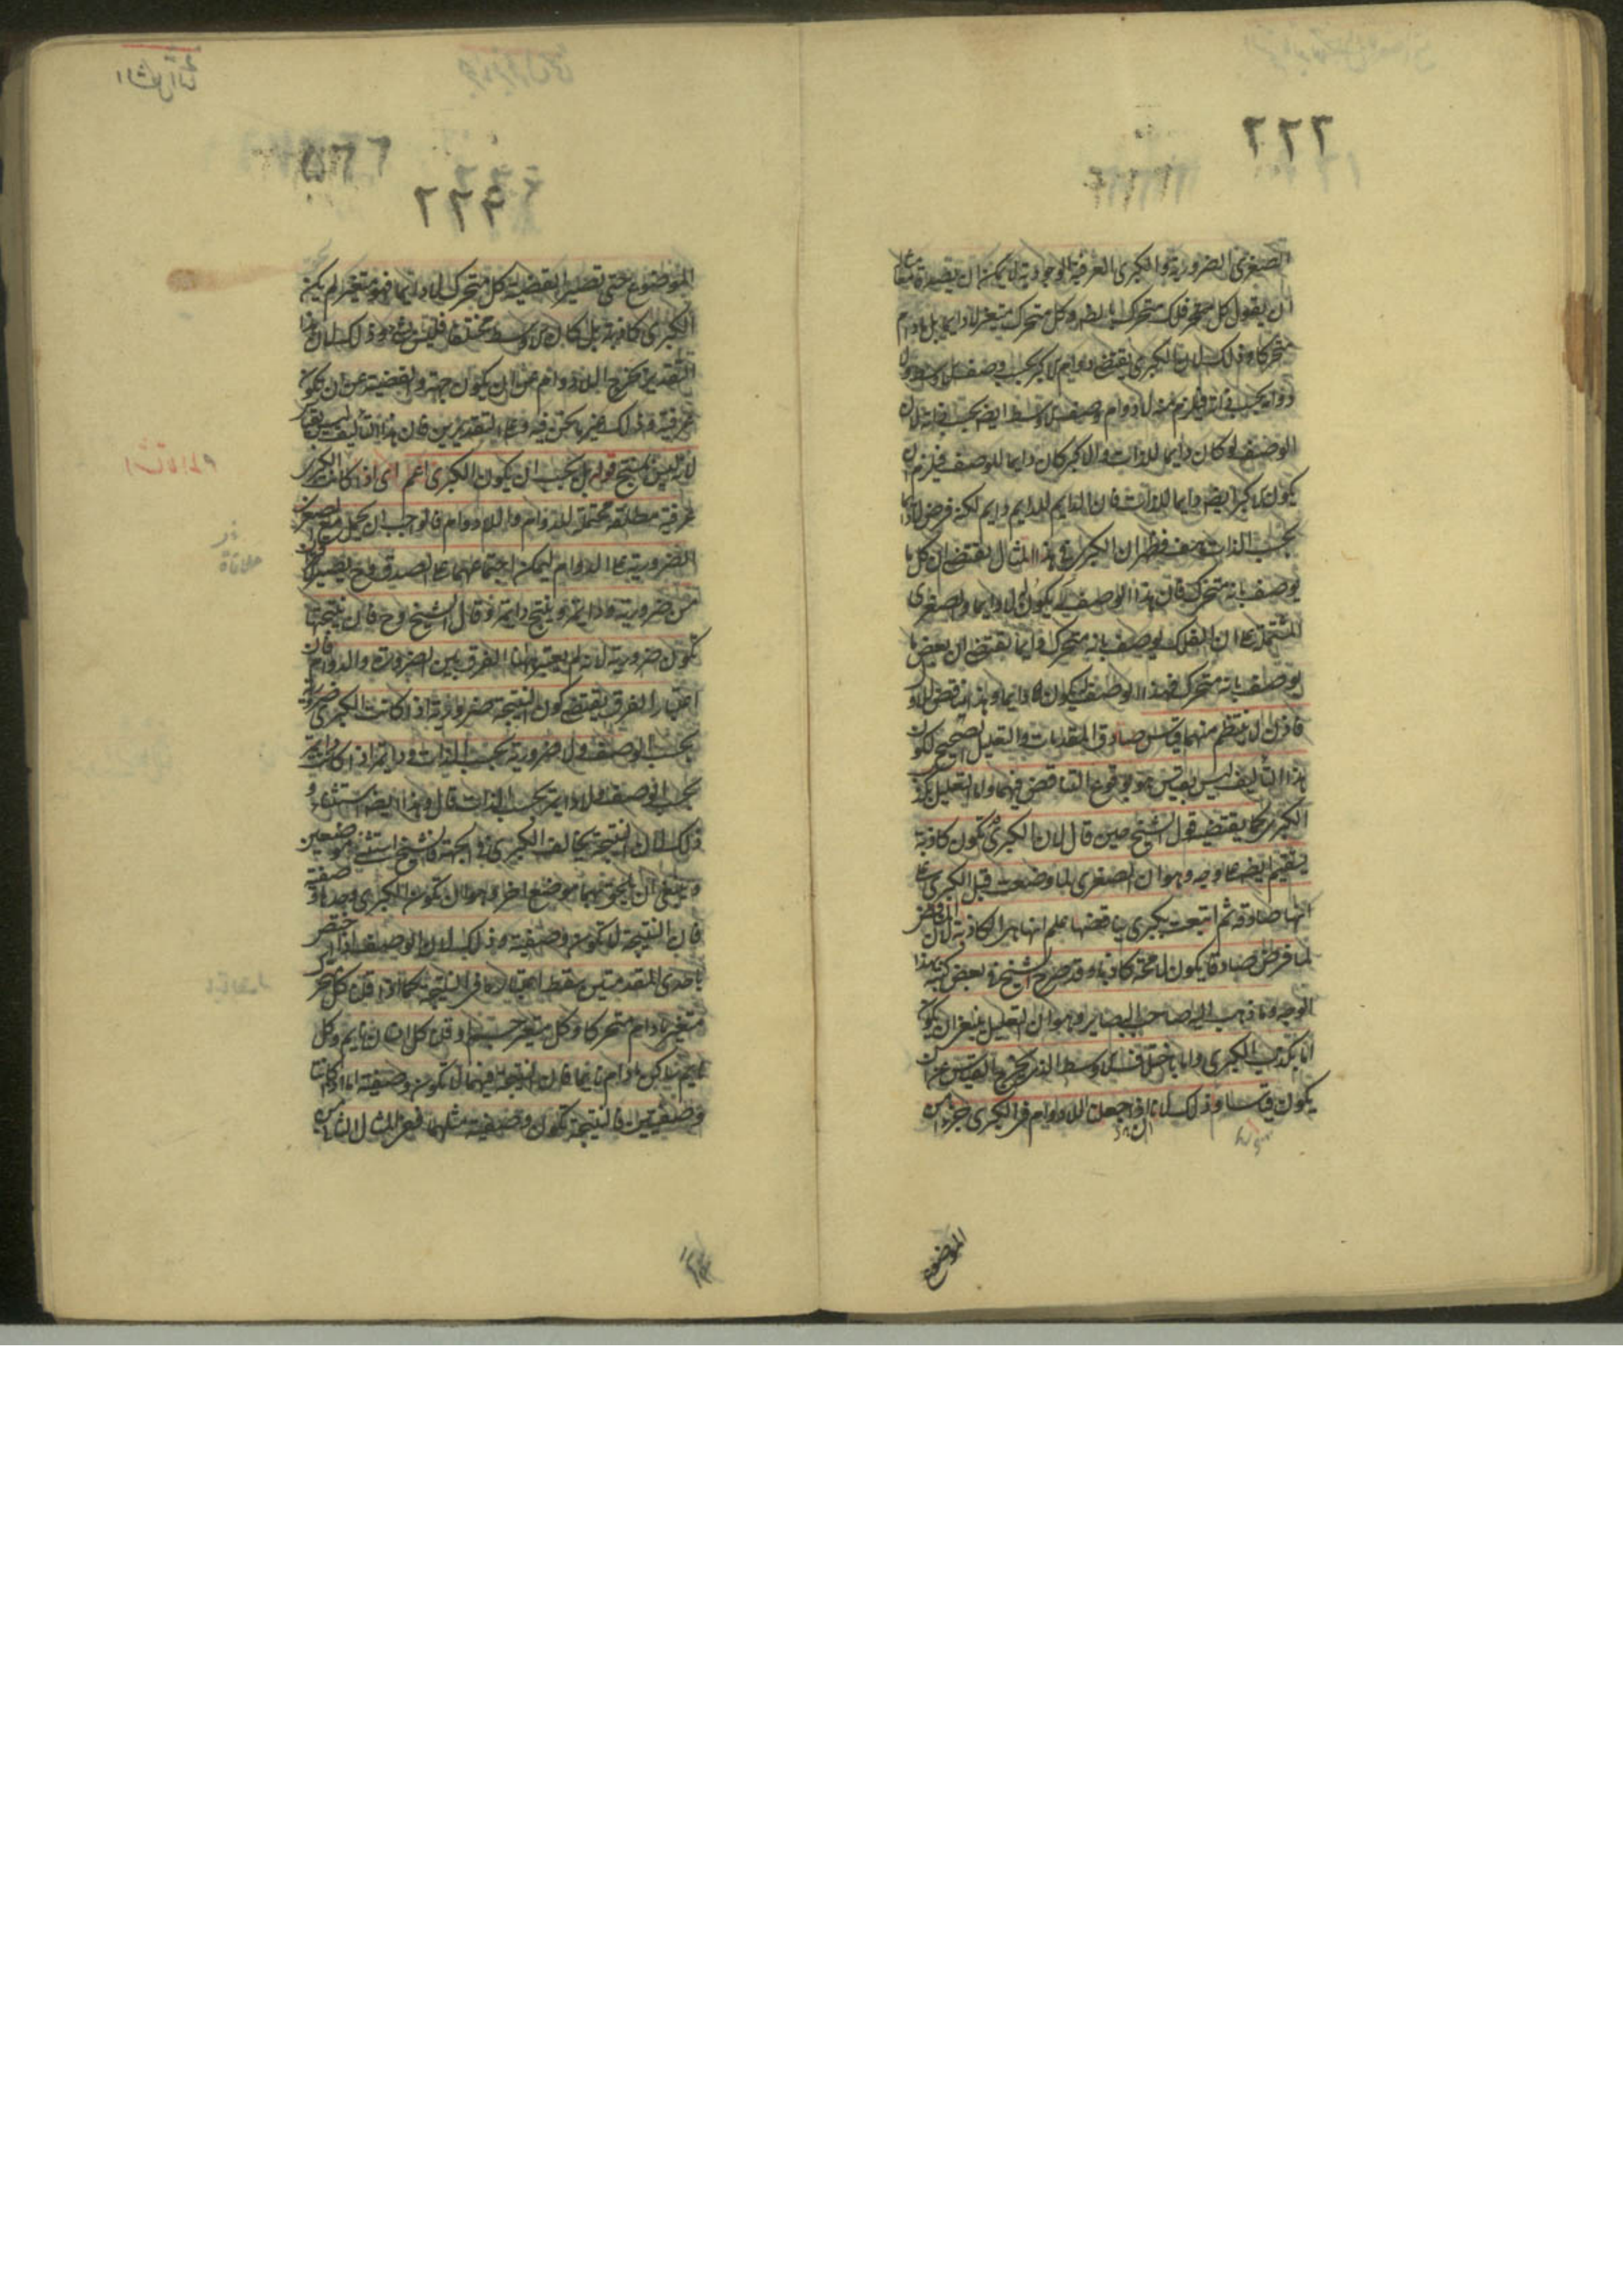 ٢٢٦
الصغرى الضرورية والكبرى العرفية الوجودية لا يمكن ان يصير قياسا
ان يقول كل فلك متحرك بالضرورة وكل متحرك متغير لا دايما بل ما دام
متحركا وذلك لان الكبرى يقتضى دوام الاكبر بحسب وصف الاوسط
دوام بحسب ذاته فيلزم منه لا دوام وصف الاوسط ايضا بحسب ذاته لان
الوصف لو كان دايما للذات والاكبر كان دايما للوصف فيلزم ان
يكون الاكبر ايضا دايما للذات فان الدايم للدايم دايم لكنه فرض لا دايما
بحسب الذات هف فظهر ان الكبرى فى هذا المثال يقتضى ان كل ما
يوصف بانه متحرك فان هذا الوصف لا يكون له دايما والصغرى
المشتملة على ان الفلك يوصف بانه متحرك دايما يقتضى ان بعض ما
يوصف بانه متحرك فهذا الوصف يكون له دايما وهذا يناقض الاول
فاذن لا ينتظم منهما قياس صادق المقدمات والتعليل الصحيح لكون
هذا التاليف ليس بقياس هو وقوع التناقض فيهما واما التعليل بكذب
الكبرى كما يقتضيه قول الشيخ حين قال لان الكبرى تكون كاذبة
يستقيم ايضا على وجه وهو ان الصغرى لما وضعت قبل الكبرى على
انها صادقة ثم اتبعت بكبرى يناقضها علم انها هى الكاذبة لان مناقض
لما فرض صادقا يكون لا محة كاذبا وقد صرح الشيخ فى بعض كتبه بهذا
الوجه وذهب اليه صاحب البصاير وهو ان التعليل ينبغى ان يكون
اما بكذب الكبرى واما باختلاف الاوسط الذى يخرج القياس عن ان
يكون قياسا وذلك لانا اذا جعلنا اللادوام فى الكبرى جزءا من
الموضوع
الموضوع حتى تصير القضية كل متحرك لا دايما فهو متغير لم يكن
الكبرى كاذبة بل كان الاوسط مختلفا فليس بشى وذلك لان هذا
التقدير يخرج اللادوام عن ان يكون جهة والقضية عن ان يكون
عرفية وذلك غير ما نحن فيه وعلى التقديرين فان هذا التاليف ليس بقياس
لانه ليس بمنتج قوله بل يجب ان يكون الكبرى اعم اى اذا كانت الكبرى
عرفية مطلقة محتملة للدوام واللادوام فالواجب ان يحمل مع الصغرى
الضرورية على الدوام ليمكن اجتماعهما على الصدق وح يصير
من ضرورية ودايمة وينتج دايمة وقال الشيخ وح فان نتيجتها
تكون ضرورية لانه لم يعتبر هاهنا الفرق بين الضرورة والدوام فان
اعتبار الفرق يقتضى كون النتيجة ضرورية اذا كانت الكبرى ضرورية
بحسب الوصف ولا ضرورية بحسب الذات ودايمة اذا كانت دايمة
بحسب الوصف ولا دايمة بحسب الذات قال وهذا ايضا استثناء و
ذلك لان النتيجة يخالف الكبرى فى الجهة فالشيخ استثنى موضعين
وينبغى ان يلحق بهما موضع اخر وهو ان تكون الكبرى وحدها وصفية
فان النتيجة لا تكون وصفية وذلك لان الوصف اذا اختص
باحدى المقدمتين سقط اعتباره فى النتيجة كما اذا قلنا كل متحرك
متغير ما دام متحركا وكل متغير جسم او قلنا كل انسان نايم وكل
نايم ساكن ما دام نايما فان النتيجة فيهما لا تكون وصفية اما اذا كانتا
وصفيتين فالنتيجة تكون وصفية مثلهما